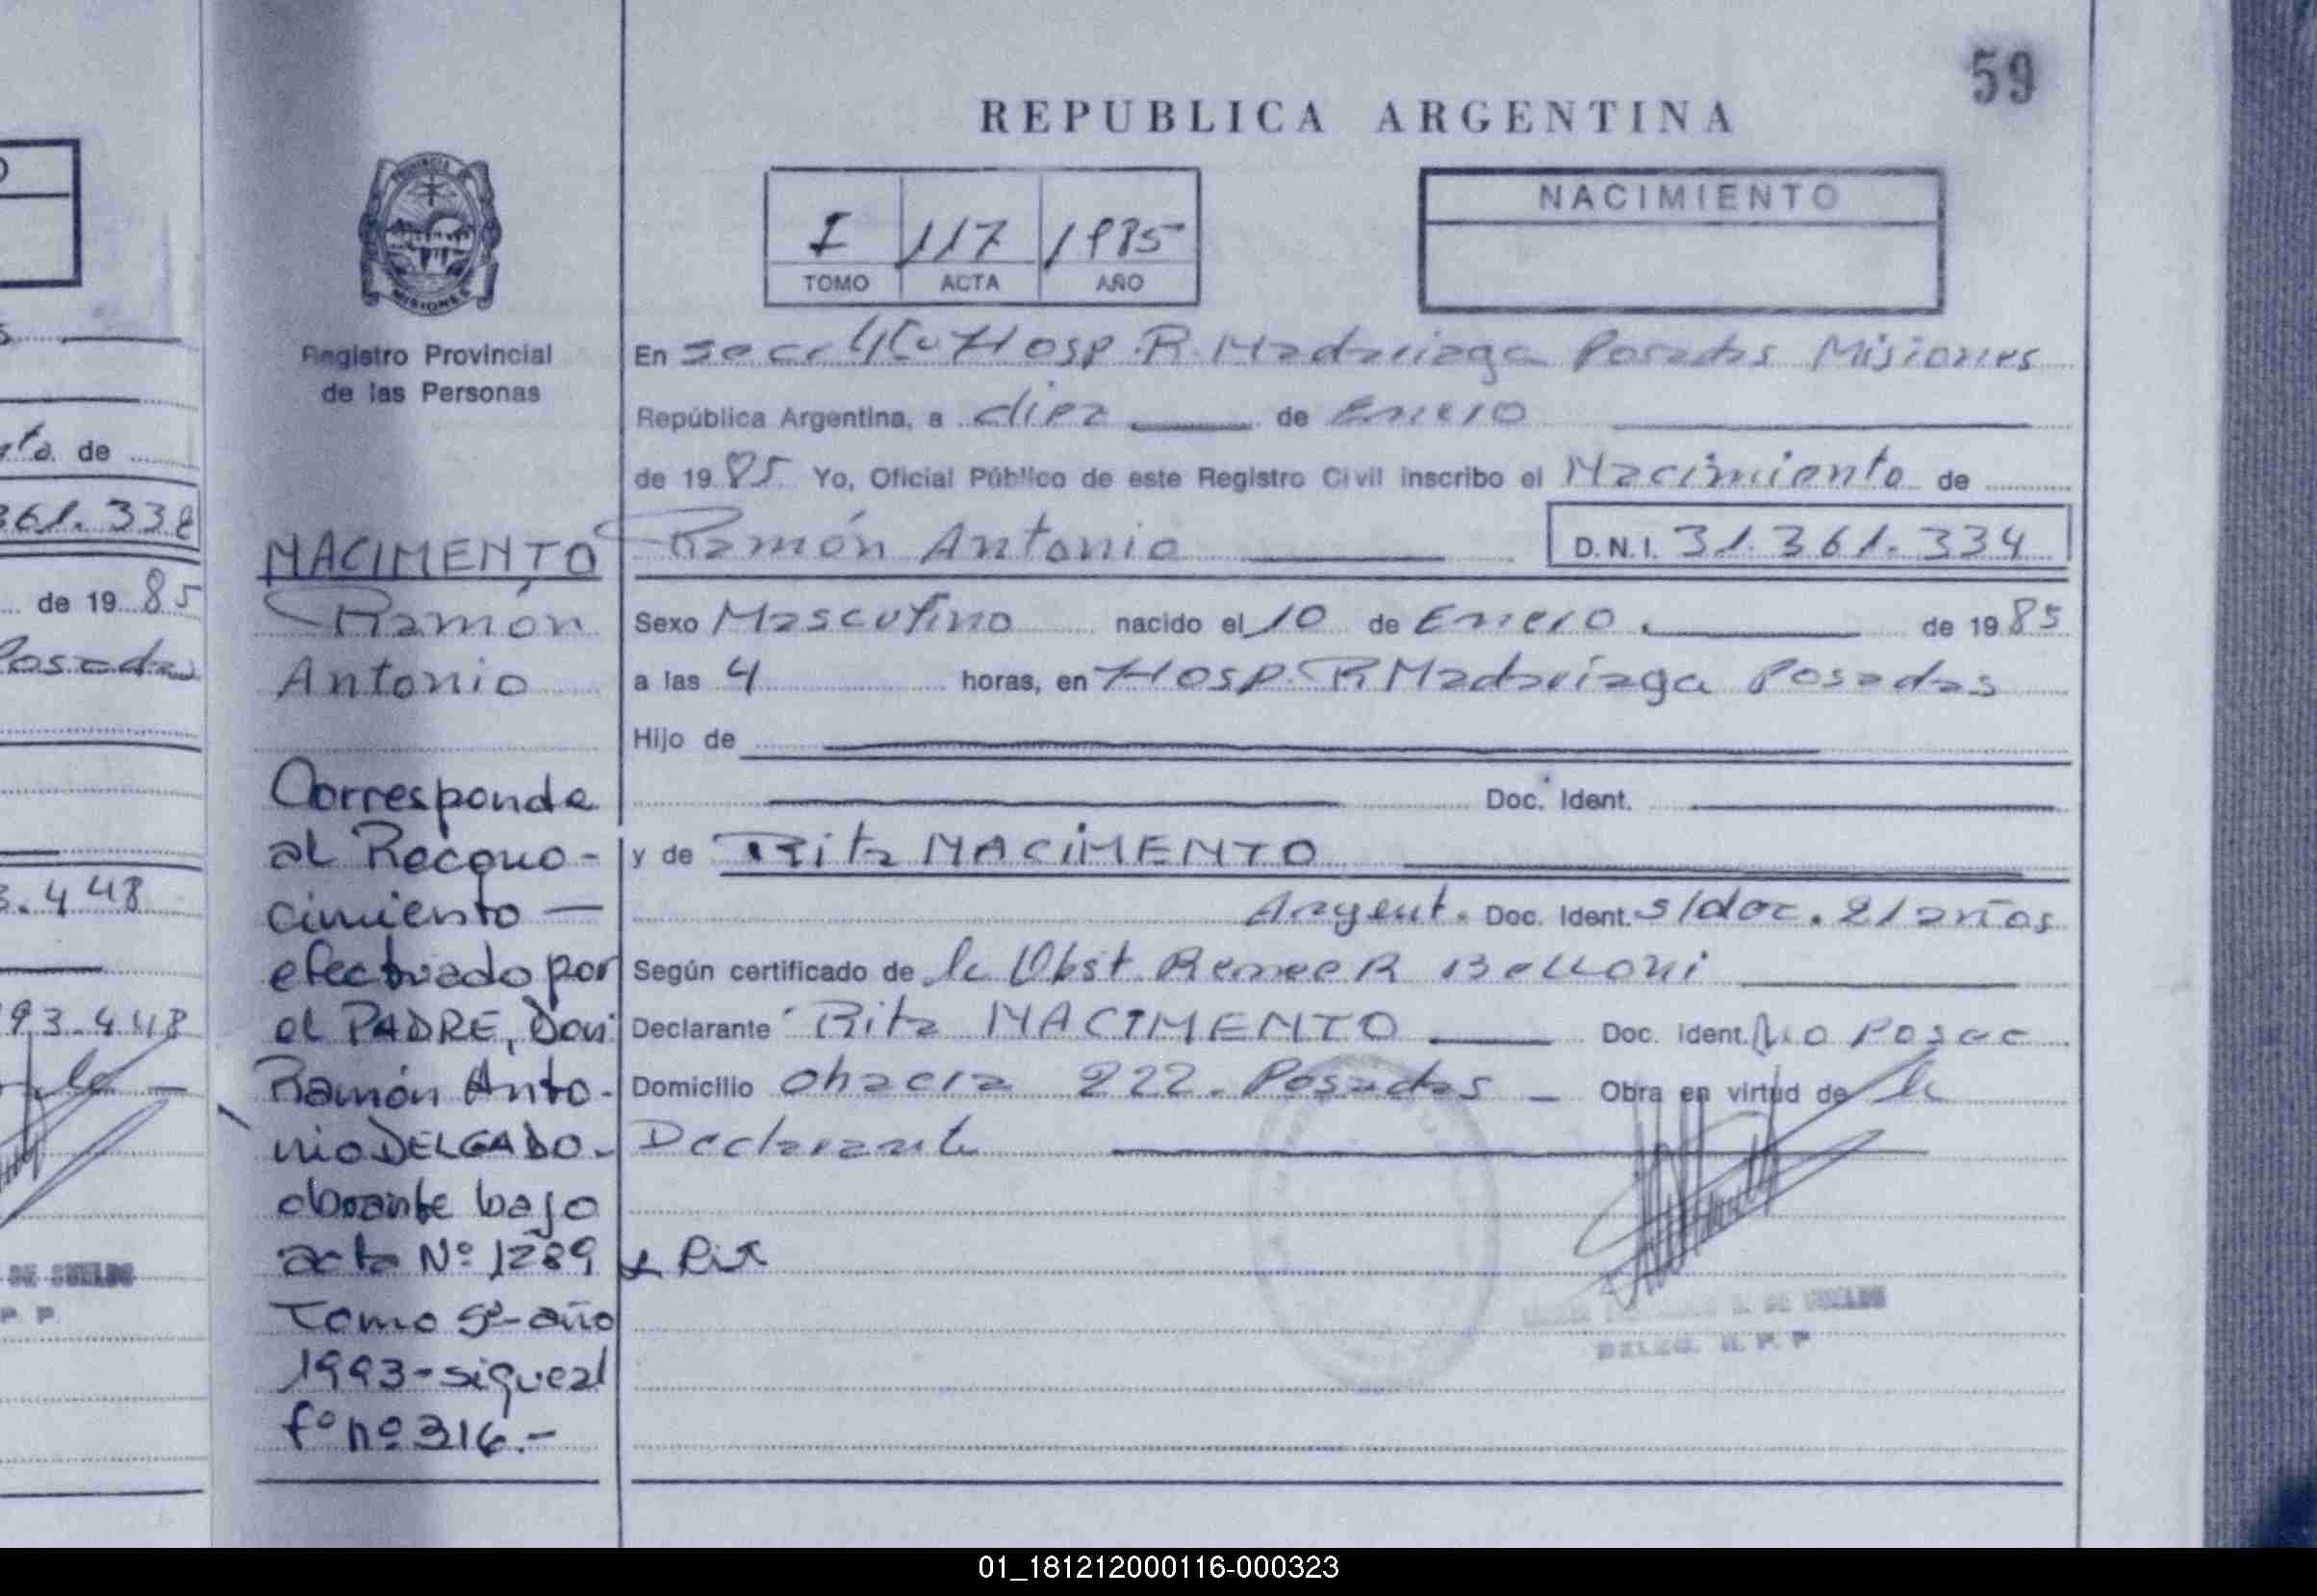 59
REPUBLICA ARGENTINA
I 117 1985
TOMO ACTA AÑO
NACIMIENTO
PROVINCIA
MISIONES
Registro Provincial
de las Personas
En Hosp. R. Madariaga Posadas Misiones
República Argentina, a diez de Enero
de 1985 Yo, Oficial Público de este Registro Civil inscribo el Nacimiento de
Ramón Antonio D.N.I. 31.361.334
Sexo Masculino nacido el 10 de Enero de 1985
a las 4 horas, en Hosp. R Madariaga Posadas
Hijo de
Doc. Ident.
y de Rita NACIMENTO
Argent. Doc. Ident. s/doc. 21 años
Según certificado de la Obst Renee R Belloni
Declarante Rita NACIMENTO Doc. Ident. No posee
Domicilio 222. Posadas Obra en virtud de la
Declarante
NACIMENTO
Ramón
Antonio
Corresponde
al Recono-
cimiento
efectuado por
el PADRE, Don
Ramón Anto-
nio DELGADO.
obrante bajo
acta Nº 1289
Tomo 5º año
1993 - sigue al
fº nº 316.-
DE SUELDO
DELEG. R. P. P
ta de
361.338
de 1985
Posadas
3.448
93.448
DE SUELDO
P. P.
01_181212000116-000323